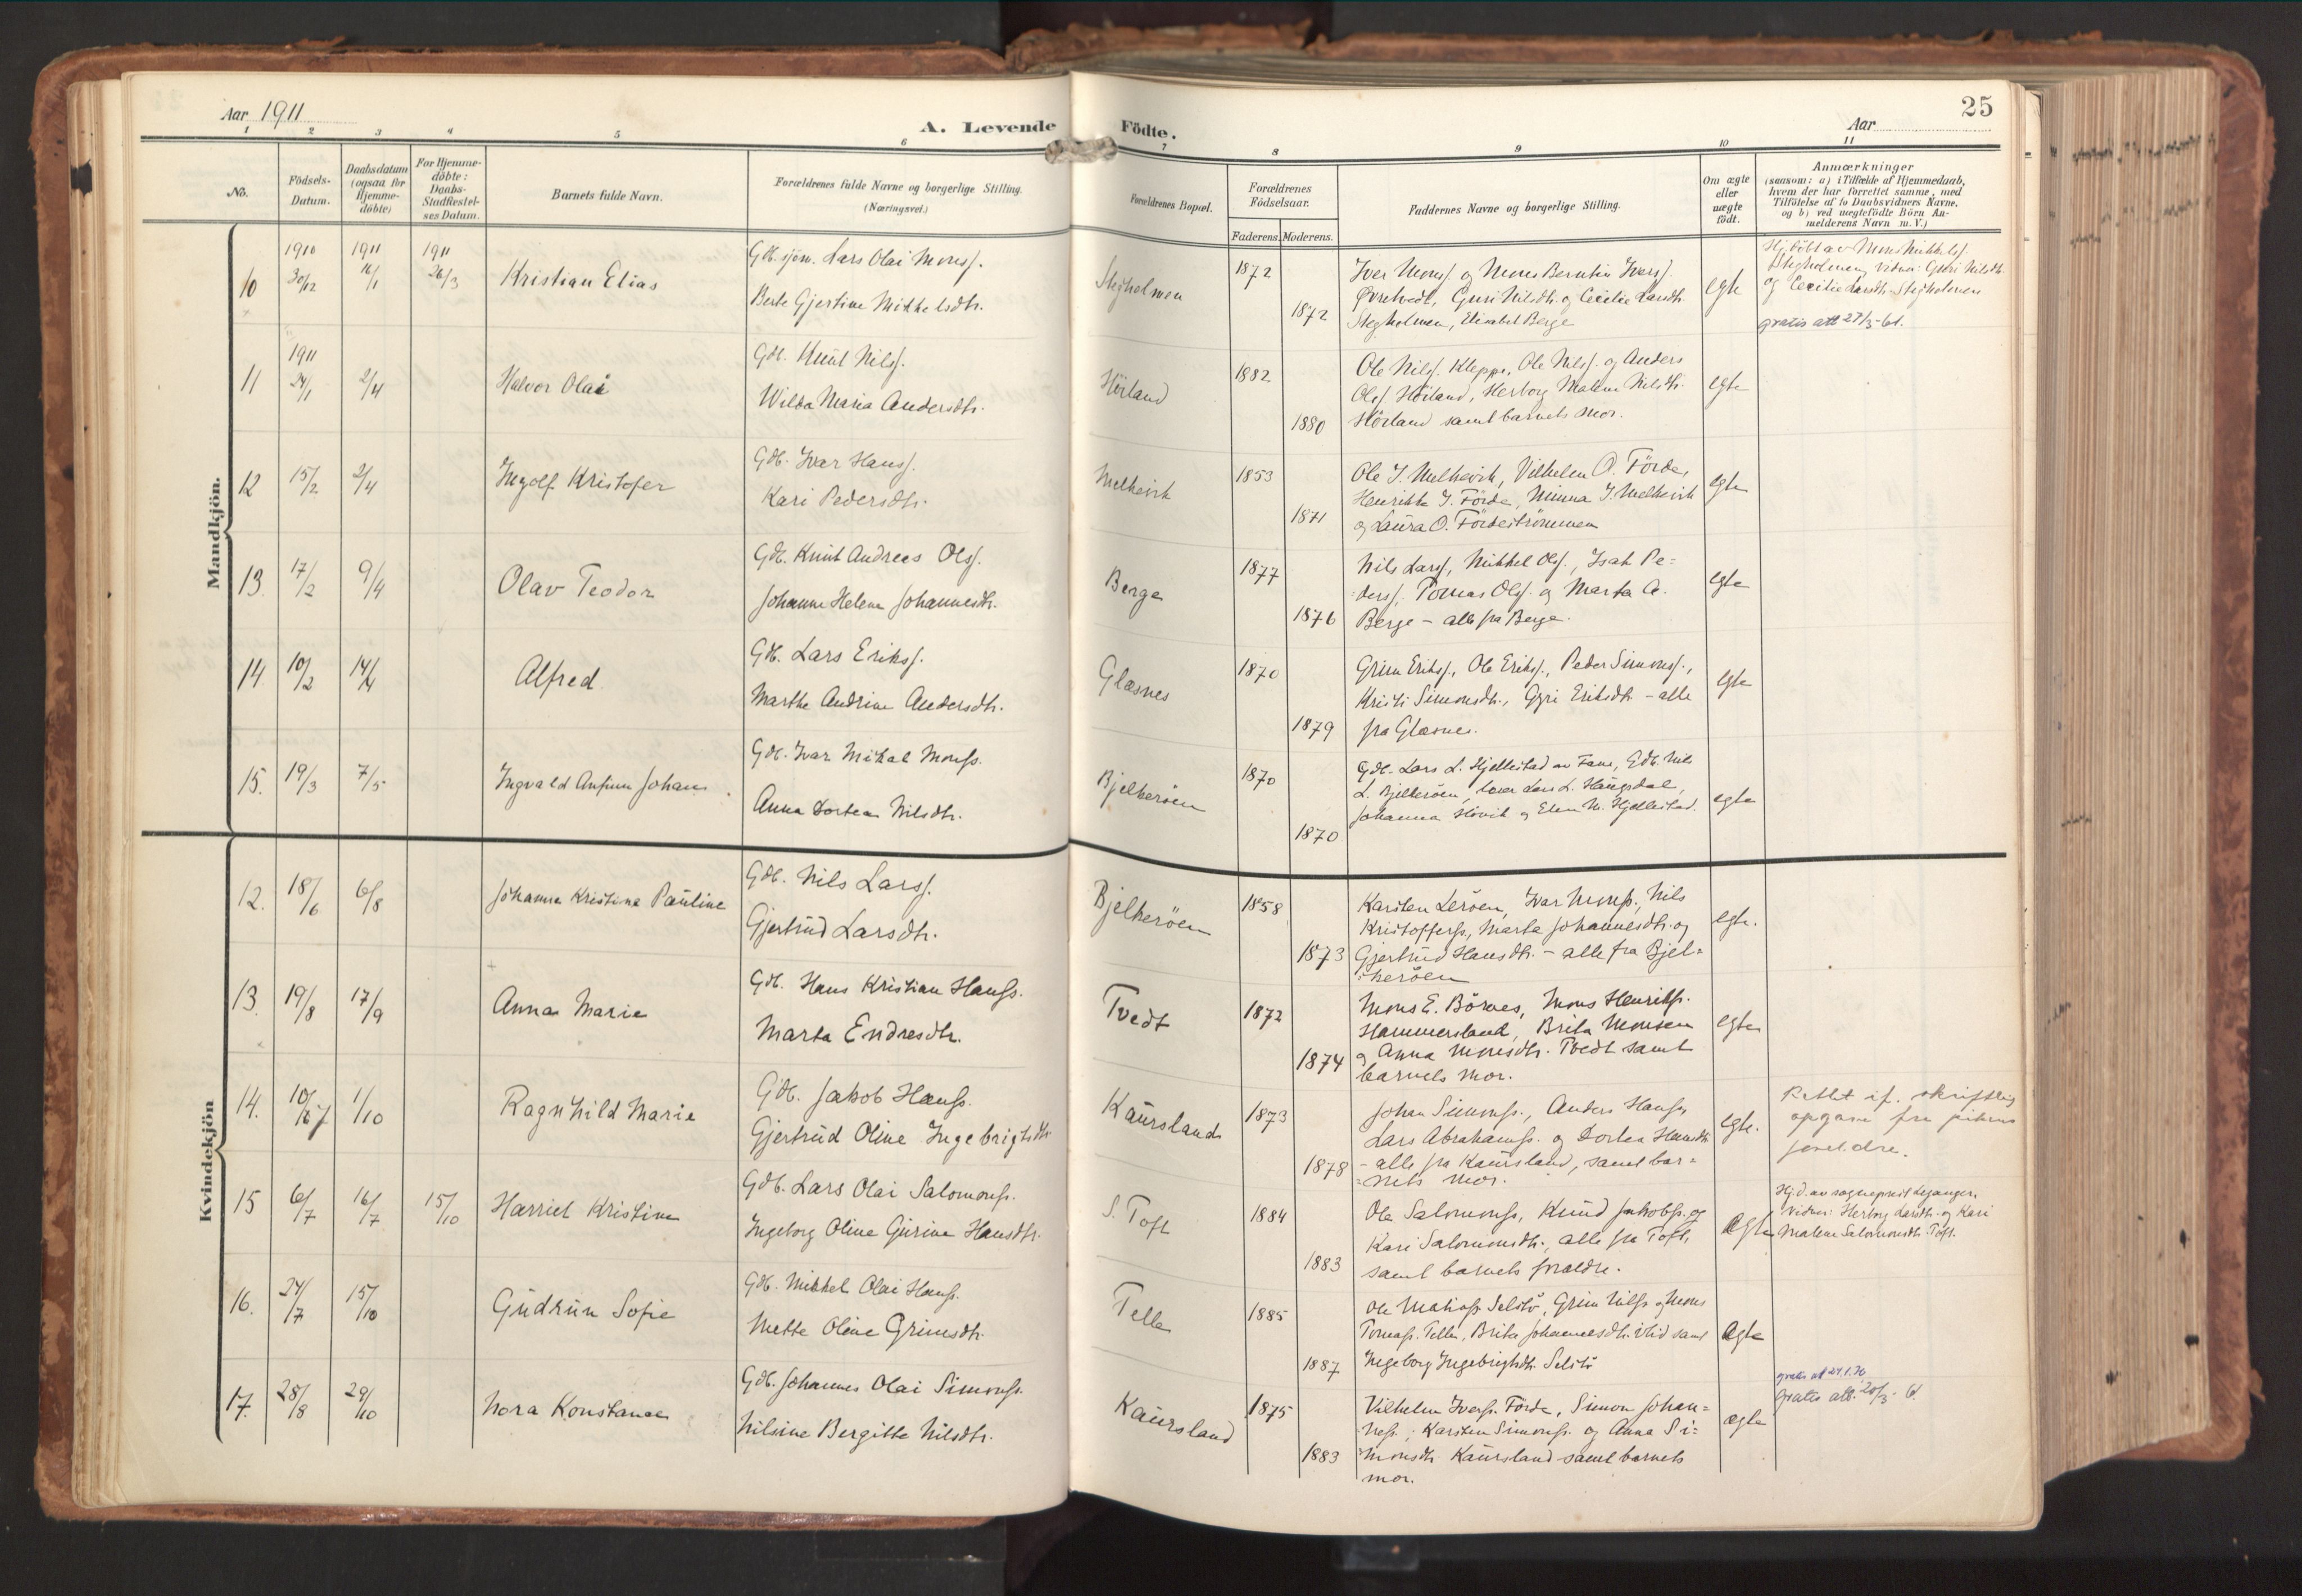 Aar 1911
A. Levende Födte.
Aar
25
1 2 3 4 5 6 7 8 9 10 11
No.
Födsels-Datum.
Daabsdatum (ogsaa for Hjemme-döbte)
For Hjemme-döbte: Daabs-Stadfæstel-ses Datum.
Barnets fulde Navn.
Forældrenes fulde Navne og borgerlige Stilling. (Næringsvei.)
Forældrenes Bopæl.
Forældrenes Födselsaar.
Faderens. Moderens.
Faddernes Navne og borgerlige Stilling.
Om ægte eller uægte födt.
Anmærkninger
(saasom: a) i Tilfælde af Hjemmedaab, hvem der har forrettet samme, med Tilföielse af to Daabsvidners Navne, og b) ved uægtefödte Börn Anmelderens Navn m. V.)
Mandkjön.
10 1910 30/12 1911 16/1 1911 26/3 Kristian Elias
Gdb. sjøm. Lars Olai Monsf.
Berte Gjertine Mikkelsdtr.
Stegholmen 1872 1872
Iver Monsf. og Mons Berntin Iversf.
Øvretvedt, Guri Nilsdtr. og Cecilie Larsdtr.
Stegholmen, Elisabet Berge
egte
Hj.döbt av Mons Mikkelsf.
Stegholmen, vidner: Guri Nilsdtr.
og Cecilie Larsdtr. Stegholmen
gratis att 27/3-61.
11 1911 24/1 2/4 Halvor Olai
Gdb. Knut Nilsf.
Wilka Maria Andersdtr.
Hörland 1882 1880
Ole Nilsf. Kleppe, Ole Nilsf. og Anders
Olsf. Hörland, Herborg Malene Nilsdtr.
Hörland samt barnets mor.
egte
12 15/2 2/4 Ingolf Kristofer
Gdb. Ivar Hansf.
Kari Pedersdtr.
Melkevik 1853 1871
Ole I. Melkevik, Vilhelm O. Förde,
Henrikke I. Förde, Minna I. Melkevik
og Laura O. Fördeströmmen
egte
13 17/2 9/4 Olav Teodor
Gdb. Knut Andreas Olsf.
Johanne Helene Johannesdtr.
Berge 1877 1876
Nils Larsf., Mikkel Olsf., Isak Pe=
dersf., Tomas Olsf. og Marta A.
Berge - alle fra Berge.
egte
14 10/2 14/4 Alfred
Gdb. Lars Eriksf.
Marthe Andrine Andersdtr.
Glæsnes 1870 1879
Grim Eriksf., Ole Eriksf., Peder Simonsf.,
Kristi Simonsdtr., Gyri Eriksdtr. - alle
fra Glæsnes.
egte
15. 19/3 7/5 Ingvald Anfinn Johans
Gdb. Ivar Mikal Monsf.
Anna Dortea Nilsdtr.
Bjelkeröen 1870 1870
Gdb. Lars L. Hjellestad av Fane, Gdb. Nils
L. Bjelkeröen, Lars L. Haugsdal,
Johanna Hövik og Elen M. Hjellestad.
egte
Kvindekjön
12. 18/6 6/8 Johanna Kristine Pauline
Gdb. Nils Larsf.
Gjertrud Larsdtr.
Bjelkeröen 1858 1873
Karsten Leröen, Ivar Monsf., Nils
Kristoffersf., Marta Johannesdtr. og
Gjertrud Hansdtr. - alle fra Bjel=
keröen
egte.
13. 19/8 17/9 Anna Marie
Gdb. Hans Kristian Hansf.
Marta Endresdtr.
Tvedt 1872 1874
Mons E. Börnes, Mons Henriksf.
Hammersland, Brita Monsen
og Anna Monsdtr. Tvedt samt
barnets mor.
egte
14. 10/7 1/10 Ragnhild Marie
Gdb. Jakob Hansf.
Gjertrud Oline Ingebrigtsdtr.
Kaursland 1873 1878
Johan Simonsf., Anders Hansf.,
Lars Abrahamsf. og Dortea Hansdtr.
- alle fra Kaursland, samt bar=
nets mor.
egte.
Rettet if. skriftlig
opgave fra pikens
foreldre.
15 6/7 16/7 15/10 Harriet Kristine
Gdb. Lars Olai Salomonsf.
Ingeborg Oline Gurine Hansdtr.
S. Toft 1884 1883
Ole Salomonsf., Knud Jakobsf. og
Kari Salomonsdtr., alle fra Toft,
samt barnets foraldre.
Ægte
Hj.d. av sogneprest Leganger.
Vidner: Herborg Larsdtr. og Kari
Malene Salomonsdtr. Toft.
16. 24/7 15/10 Gudrun Sofie
Gdb. Mikkel Olai Hansf.
Mette Oline Grimsdtr.
Telle 1885 1887
Ole Matiasf. Selstö, Grim Nilsf. og Mons
Tomasf. Telle, Brita Johannesdtr. ibid samt
Ingeborg Ingebrigtsdtr. Selstö
Ægte
17. 28/8 29/10 Nora Konstanse
Gdb. Johannes Olai Simonsf.
Nilsine Bergitte Nilsdtr.
Kaursland 1875 1883
Vilhelm Iversf. Förde, Simon Johan=
nesf., Karsten Simonsf. og Anna Si=
monsdtr. Kaursland samt barnets
mor.
ægte
gratis att 24.1.36
Gratis att. 20/3-61